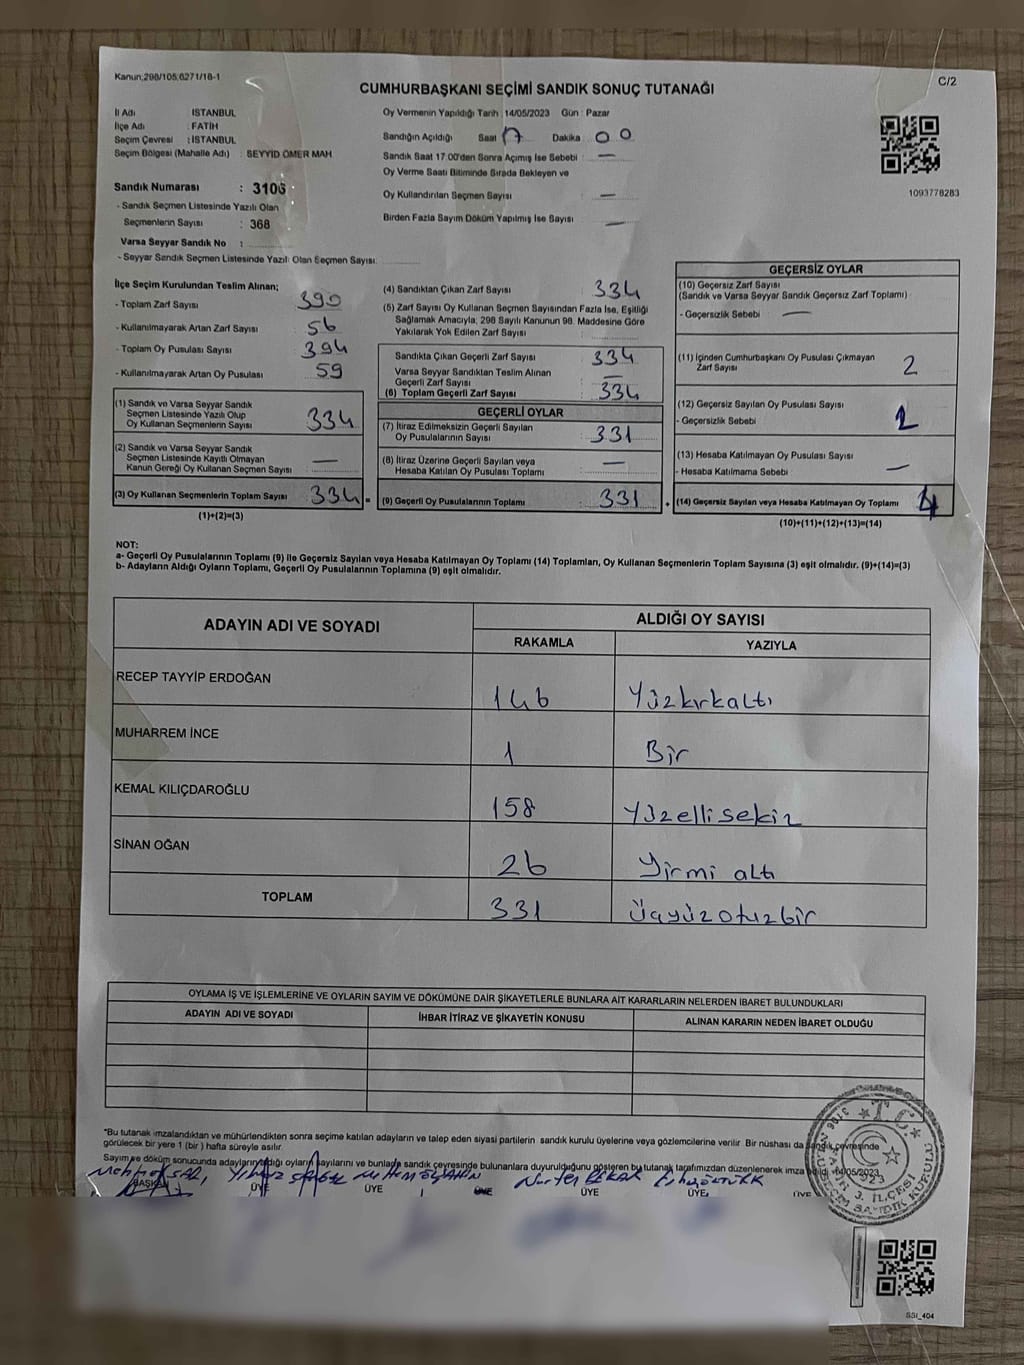 Kanun;298/105;6271/18-1
C/2
CUMHURBAŞKANI SEÇİMİ SANDIK SONUÇ TUTANAĞI
İl Adı : İSTANBUL
İlçe Adı : FATİH
Seçim Çevresi : İSTANBUL
Seçim Bölgesi (Mahalle Adı) : SEYYİD ÖMER MAH
Sandık Numarası : 3106
- Sandık Seçmen Listesinde Yazılı Olan
Seçmenlerin Sayısı : 368
Varsa Seyyar Sandık No :
- Seyyar Sandık Seçmen Listesinde Yazılı Olan Seçmen Sayısı:
Oy Vermenin Yapıldığı Tarih : 14/05/2023 Gün : Pazar
Sandığın Açıldığı Saat 17 Dakika : 00
Sandık Saat 17:00'den Sonra Açılmış İse Sebebi : —
Oy Verme Saati Bitiminde Sırada Bekleyen ve
Oy Kullandırılan Seçmen Sayısı : —
Birden Fazla Sayım Döküm Yapılmış İse Sayısı : —
1093778283
İlçe Seçim Kurulundan Teslim Alınan;
- Toplam Zarf Sayısı : 390
- Kullanılmayarak Artan Zarf Sayısı : 56
- Toplam Oy Pusulası Sayısı : 394
- Kullanılmayarak Artan Oy Pusulası : 59
(1) Sandık ve Varsa Seyyar Sandık
Seçmen Listesinde Yazılı Olup
Oy Kullanan Seçmenlerin Sayısı : 334
(2) Sandık ve Varsa Seyyar Sandık
Seçmen Listesinde Kayıtlı Olmayan
Kanun Gereği Oy Kullanan Seçmen Sayısı : —
(3) Oy Kullanan Seçmenlerin Toplam Sayısı : 334 =
(1)+(2)=(3)
(4) Sandıktan Çıkan Zarf Sayısı : 334
(5) Zarf Sayısı Oy Kullanan Seçmen Sayısından Fazla İse, Eşitliği
Sağlamak Amacıyla; 298 Sayılı Kanunun 98. Maddesine Göre
Yakılarak Yok Edilen Zarf Sayısı :
Sandıkta Çıkan Geçerli Zarf Sayısı : 334
Varsa Seyyar Sandıktan Teslim Alınan
Geçerli Zarf Sayısı : —
(6) Toplam Geçerli Zarf Sayısı : 334
GEÇERLİ OYLAR
(7) İtiraz Edilmeksizin Geçerli Sayılan
Oy Pusulalarının Sayısı : 331
(8) İtiraz Üzerine Geçerli Sayılan veya
Hesaba Katılan Oy Pusulası Toplamı : —
(9) Geçerli Oy Pusulalarının Toplamı : 331 +
GEÇERSİZ OYLAR
(10) Geçersiz Zarf Sayısı
(Sandık ve Varsa Seyyar Sandık Geçersiz Zarf Toplamı) :
- Geçersizlik Sebebi : —
(11) İçinden Cumhurbaşkanı Oy Pusulası Çıkmayan
Zarf Sayısı : 2
(12) Geçersiz Sayılan Oy Pusulası Sayısı :
- Geçersizlik Sebebi : 2
(13) Hesaba Katılmayan Oy Pusulası Sayısı :
- Hesaba Katılmama Sebebi : —
(14) Geçersiz Sayılan veya Hesaba Katılmayan Oy Toplamı : 4
(10)+(11)+(12)+(13)=(14)
NOT:
a- Geçerli Oy Pusulalarının Toplamı (9) ile Geçersiz Sayılan veya Hesaba Katılmayan Oy Toplamı (14) Toplamları, Oy Kullanan Seçmenlerin Toplam Sayısına (3) eşit olmalıdır. (9)+(14)=(3)
b- Adayların Aldığı Oyların Toplamı, Geçerli Oy Pusulalarının Toplamına (9) eşit olmalıdır.
ADAYIN ADI VE SOYADI
ALDIĞI OY SAYISI
RAKAMLA YAZIYLA
RECEP TAYYİP ERDOĞAN 146 Yüzkırkaltı
MUHARREM İNCE 1 Bir
KEMAL KILIÇDAROĞLU 158 Yüzellisekiz
SİNAN OĞAN 26 Yirmi altı
TOPLAM 331 Üçyüzotuzbir
OYLAMA İŞ VE İŞLEMLERİNE VE OYLARIN SAYIM VE DÖKÜMÜNE DAİR ŞİKAYETLERLE BUNLARA AİT KARARLARIN NELERDEN İBARET BULUNDUKLARI
ADAYIN ADI VE SOYADI İHBAR İTİRAZ VE ŞİKAYETİN KONUSU ALINAN KARARIN NEDEN İBARET OLDUĞU
*Bu tutanak imzalandıktan ve mühürlendikten sonra seçime katılan adayların ve talep eden siyasi partilerin sandık kurulu üyelerine veya gözlemcilerine verilir. Bir nüshası da sandık çevresinde
görülecek bir yere 1 (bir) hafta süreyle asılır.
Sayım ve döküm sonucunda adayların aldığı oyların sayılarını ve bunların sandık çevresinde bulunanlara duyurulduğunu gösteren bu tutanak tarafımızdan düzenlenerek imza edildi. 14/05/2023
BAŞKAN ÜYE ÜYE ÜYE ÜYE ÜYE ÜYE
T.C.
SSI_404